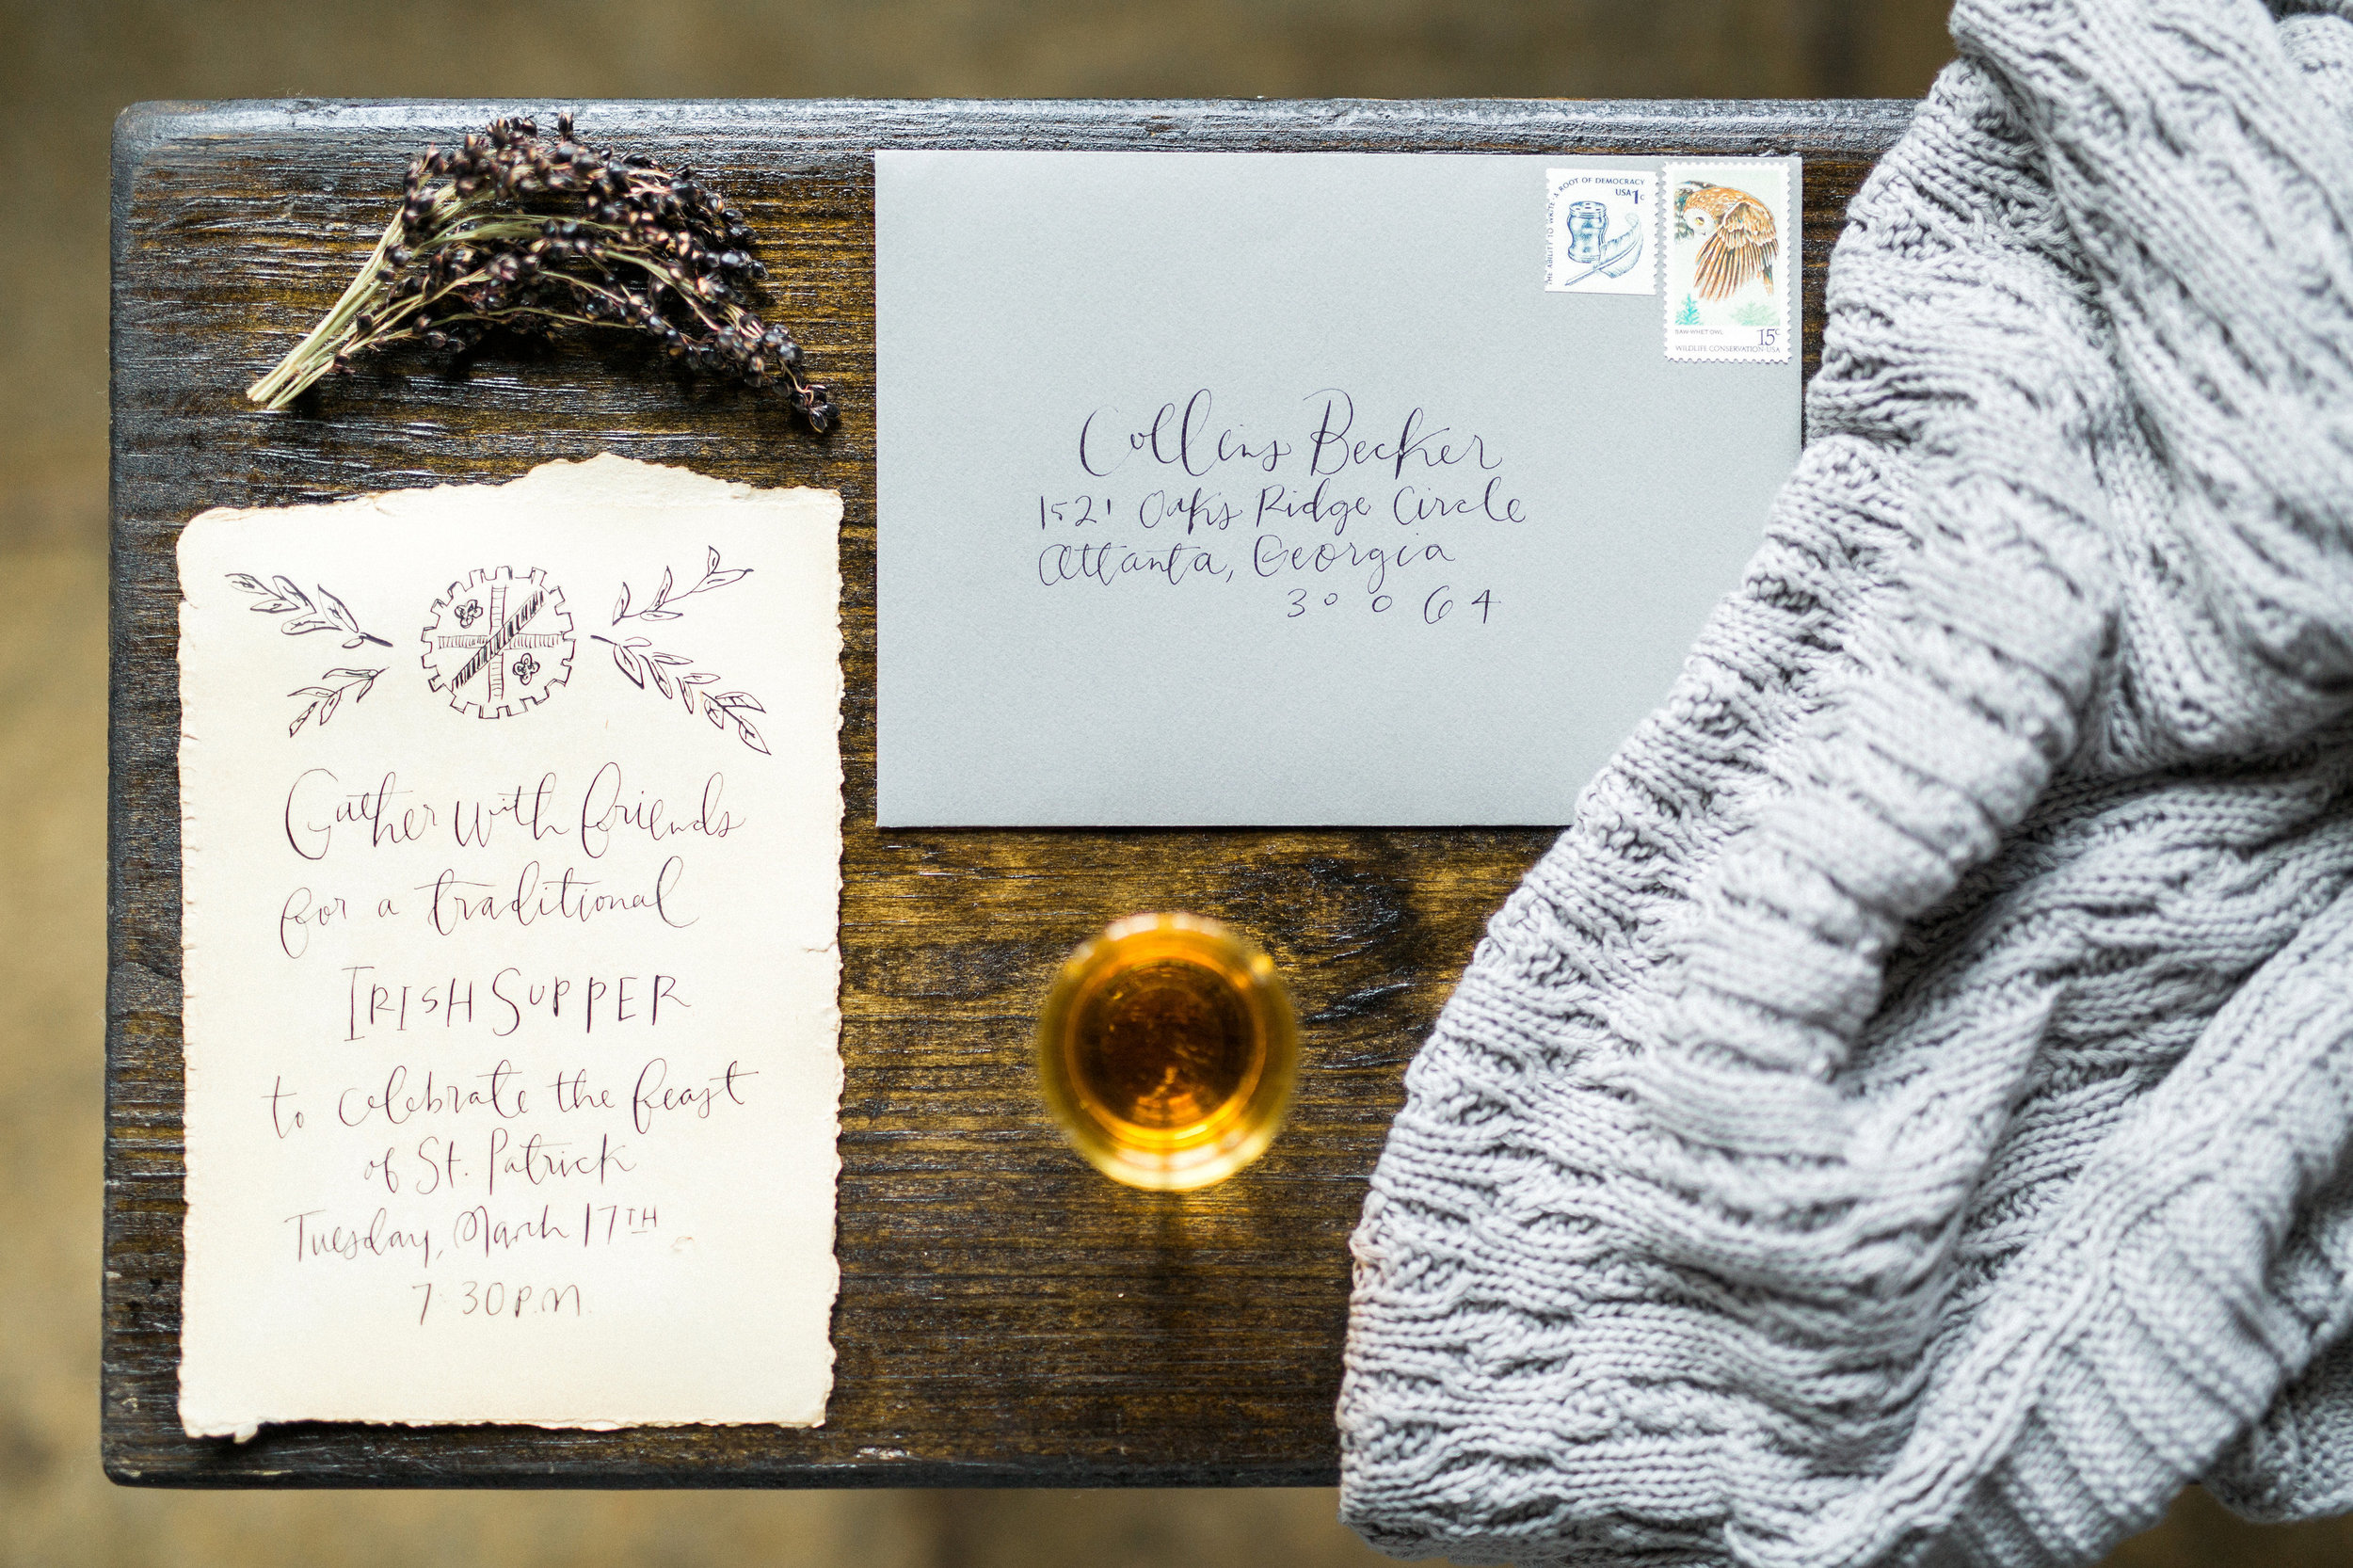 Gather with friends
for a traditional
IRISH SUPPER
to celebrate the feast
of St. Patrick
Tuesday, March 17TH
7:30 P.M.
THE ABILITY TO WRITE · A ROOT OF DEMOCRACY
USA 1c
SAW-WHET OWL
15c
WILDLIFE CONSERVATION·USA
Collins Becker
1521 Oaks Ridge Circle
Atlanta, Georgia
30064